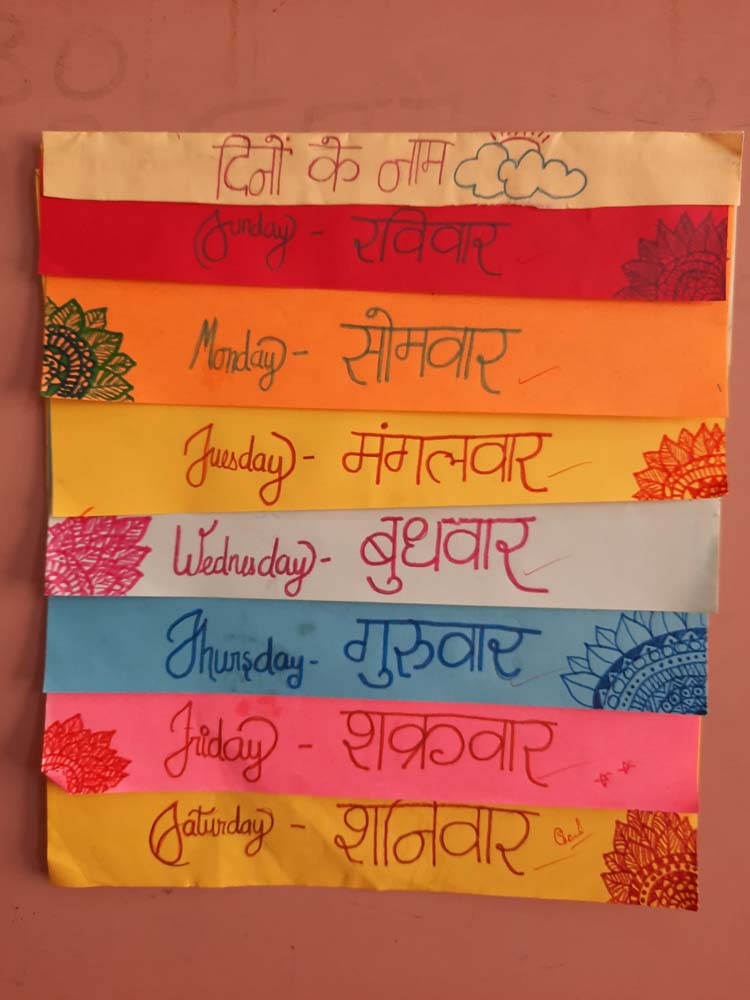 दिनों के नाम
Sunday - रविवार
Monday - सोमवार
Tuesday - मंगलवार
Wednesday - बुधवार
Thursday - गुरुवार
Friday - शक्रवार
Saturday - शनिवार